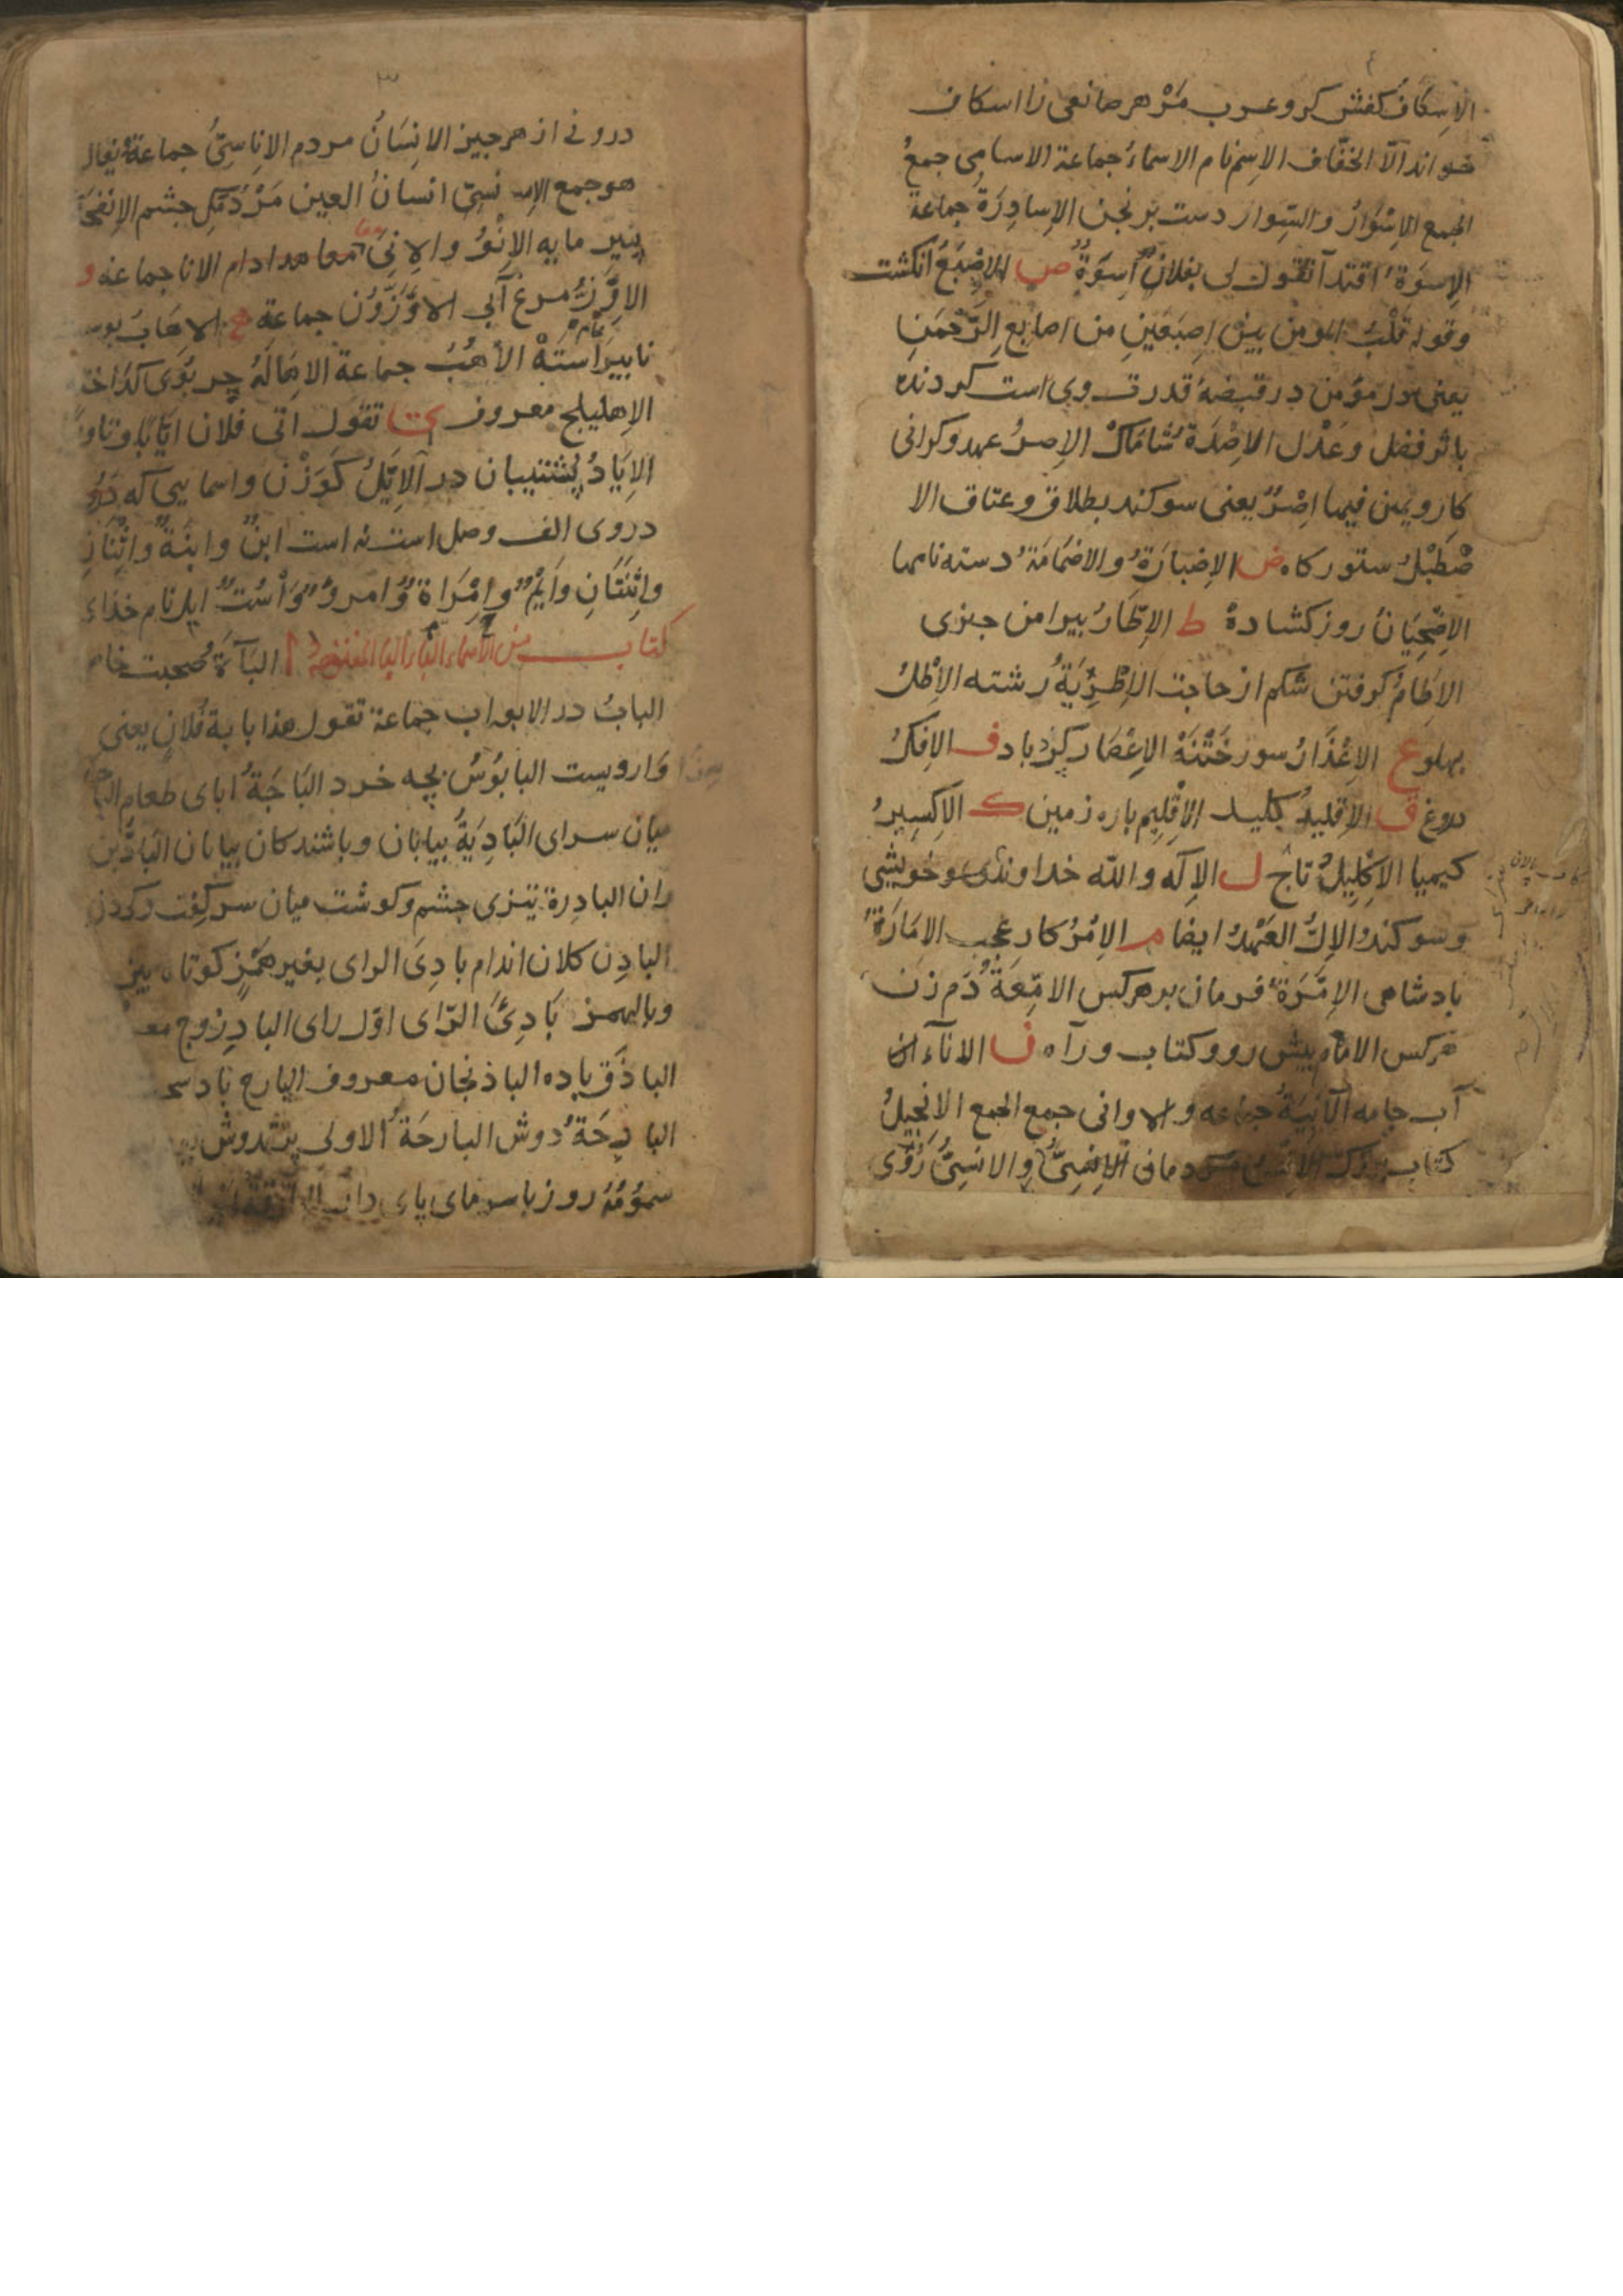 الاِسكافُ كفش كر وعرب مَرْ هر صانعی را اسکاف
خواند الّا الخفّاف الاِسم نام الاسماءُ جماعة الاسامِی جمعُ
الجمع الاِسْوَارُ والسِّوار دست برنجن الاِساوِرَةُ جماعة
الاِسوَةُ اقتدا تقول لی بفلانٍ اُسوَةٌ ص الاِصْبَعُ انکشت
وقوله قَلْبُ المومن بینَ اِصبَعَینِ من اصابعِ الرّحمَنِ
یعنی دل مؤمن در قبضهٔ قدرت وی است کردنده
باثر فضل وعَدْل الاِصْدَةُ شاماکْ الاِصرُ عهد وکرانی
کار ویمین فیها اِصْرٌ یعنی سوکند بطلاق وعتاق الا
صْطَبْلُ ستورکاه ض الاِضبارَةُ والاضمَامَةُ دسته نامها
الاِضْحِیَانُ روز کشادهْ ط الاِطَارُ بیرامن جیزی
الاِطَامُ کرفتن شکم از حاجت الاِطْرِیَةُ رشته الاِطْلُ
بهلو ع الاِعْذَارُ سور خَتْنَهْ الاِعْصَار کِرْدباد ف الاِفکُ
دروغ ق الاِقلیدُ کلید الاِقْلِیم باره زمین ک الاِکسِیرُ
کیمیا الاِکْلِیلُ تاج ل الاِلَه والله خداوند وخویشی
وسوکند الاِلُّ العَهْدُ ایضا م الاِمْرُ کار عجب الاِمَارَةُ
بادشاهی الاِمْرَةُ فرمان بر هرکس الاِمَّعَةُ دُم زن
هرکس الامام بیش رو وکتاب وراه ن الاناء
آب جامه الآنِیَةُ جماعه والاوانی جمع الجمع الانجیلُ
کتاب الاِنسُ مردمان الاِنسِیُّ والانسِیُّ
درونی از هر جیز الانسَانُ مردم الاناسِیُّ جماعة یقال
هو جمع الاِنسِیّ انسانُ العین مَرْدُمَکِ جشم الاِنفَحَةُ
بنیر مایه الاِنْوُ والاِنیَ معا الانا جماعه و
الاِوَزَّةُ مرغ آبی الاِوَزُّوْن جماعة ه الاِهَابُ بوست
نابیراستَهْ الاُهُبُ جماعة الاِهَالَةُ جربوی کداخته
الاِهلیلج معروف ی تقول اتی فلان
الاِیَادُ پُشتیبان در الاِیَّلُ کَوَزْنْ واسمایی که
دروی الف وصل است نه است ابنٌ وابنَةٌ واثْنَانِ
واثْنَتَانِ وَایْمٌ وامْرَاةٌ وامرؤٌ وَاسْتٌ ایل نام خذاء
کتاب من الاسماء الباء الباء المفتوحة ا البَآءَةُ صحبت
البابُ در الابواب جماعة تقول هذا بابة فُلانٍ یعنی
وارویست البابُوسُ بچه خرد البَاجَةُ ابای طعام
میان سرای البَادِیَةُ بیابان وباشندکان بیابان البَادَّین
ران البادِرة تیزی جشم وکوشت میان سرکِفت وکردن
البادِن کلان اندام بادِیَ الرای بغیر همزٍ
وبالهمز بَادِئَ الرّای اوّل رای البادِزوج
الباذَق باده الباذنجان معروف البارح باد
البارِحَةُ دوش البارحَةُ الاولی
سمُوْمُهُ روز باسرمای